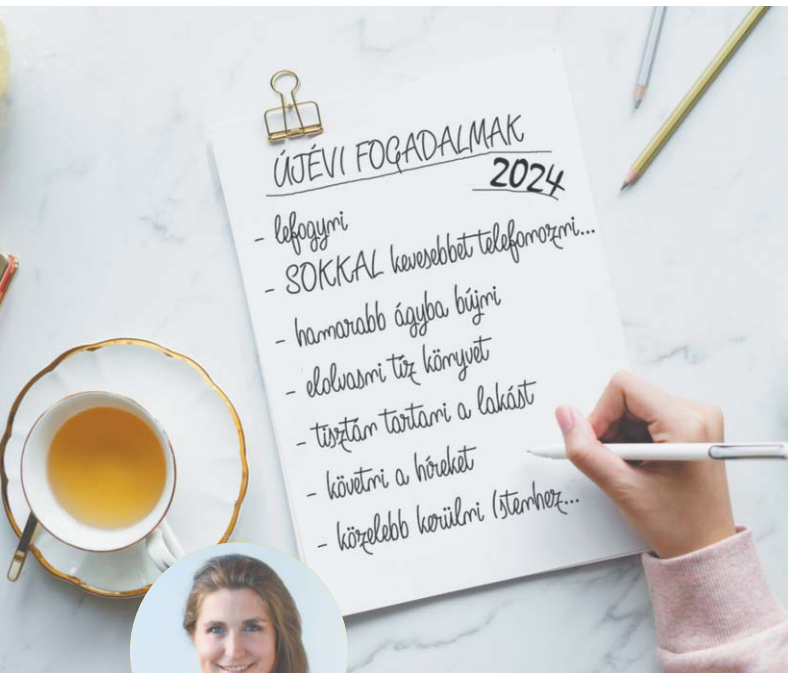 ÚJÉVI FOGADALMAK
2024
- lefogyni
- SOKKAL kevesebbet telefonozni...
- hamarabb ágyba bújni
- elolvasni tíz könyvet
- tisztán tartani a lakást
- követni a híreket
- közelebb kerülni Istenhez...